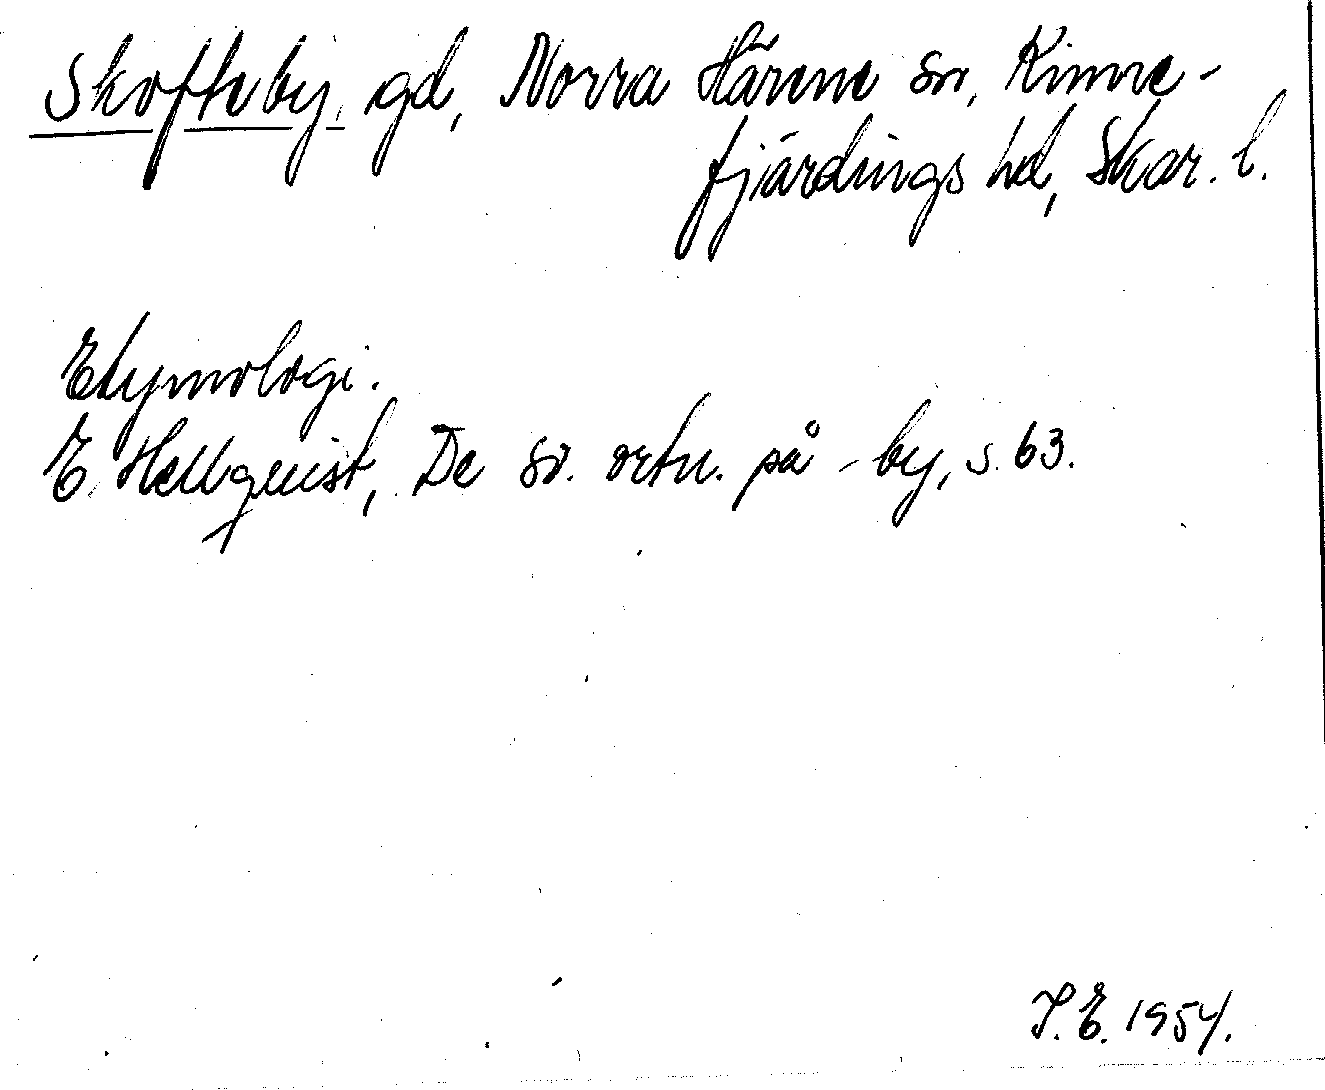 Skofteby, gd, Norra Härene sn, Kinne-
fjärdings hd, Skar. l.
Etymologi.
E. Hellquist, De sv. ortn. på -by, s. 63.
I. E. 1954.